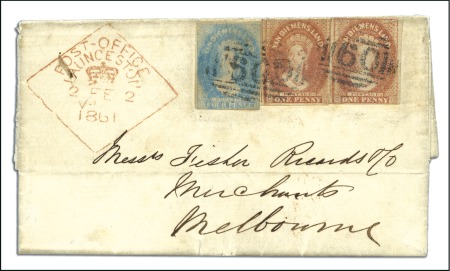 POST-OFFICE
LAUNCESTON
2 FE 2
1861
VAN DIEMENS LAND
FOUR PENCE
VAN DIEMENS LAND
ONE PENNY
VAN DIEMENS LAND
ONE PENNY
60
60
Messrs Fisher Ricards & Co
Merchants
Melbourne